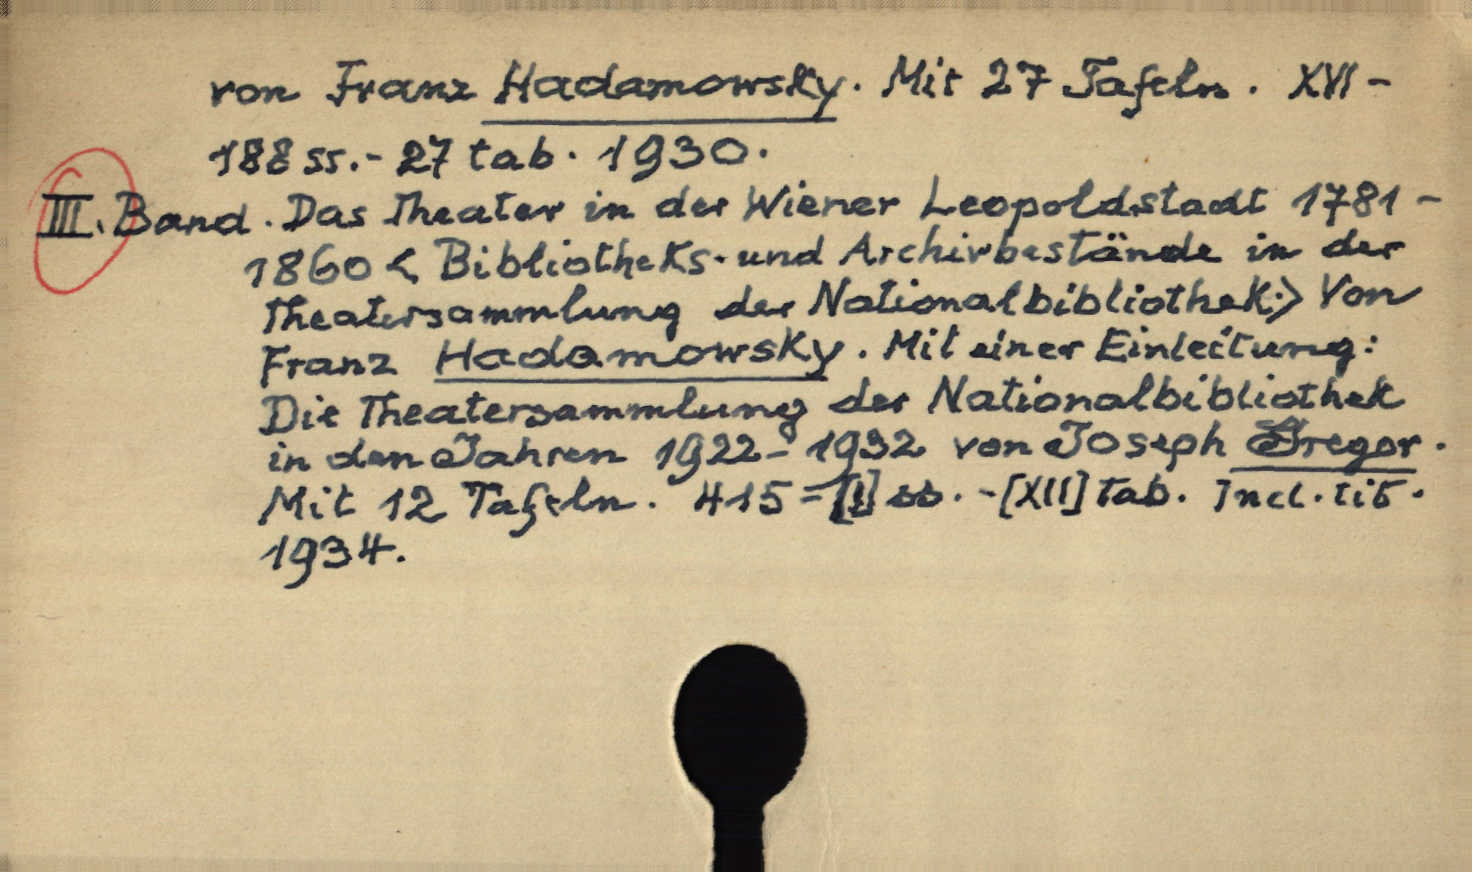 von Franz Hadamowsky. Mit 27 Tafeln. XVI -
188 ss. - 27 tab. 1930.
III. Band. Das Theater in der Wiener Leopoldstadt 1781 -
1860 < Bibliotheks- und Archivbestände in der
Theatersammlung der Nationalbibliothek.> Von
Franz Hadamowsky. Mit einer Einleitung:
Die Theatersammlung der Nationalbibliothek
in den Jahren 1922 - 1932 von Joseph Gregor.
Mit 12 Tafeln. 415 = [1] ss. - [XII] tab. Incl. tit.
1934.